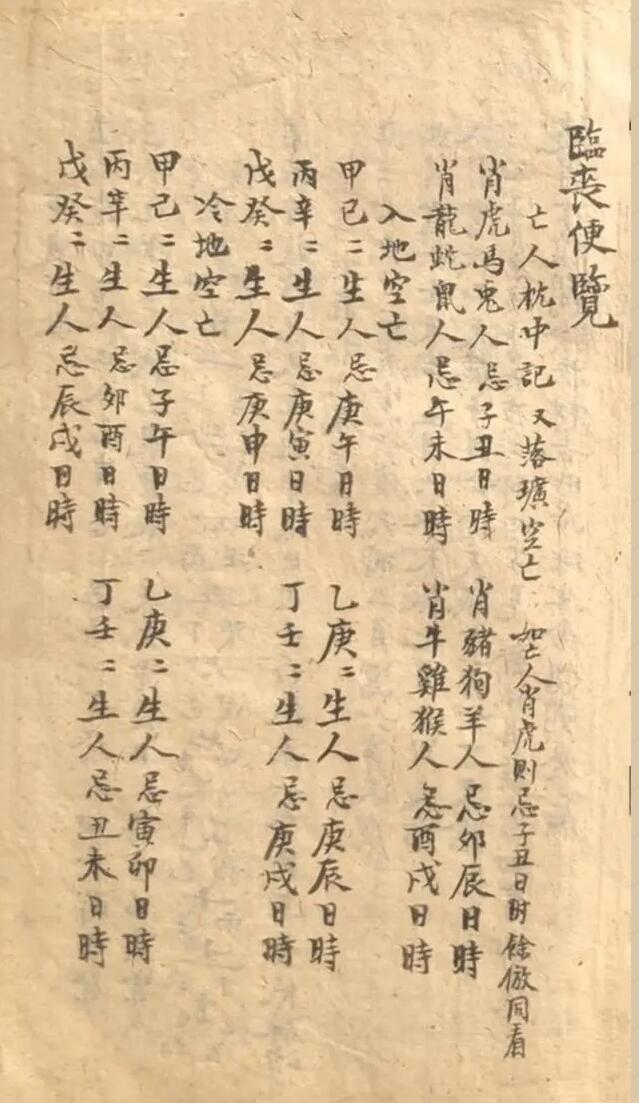 臨喪便覽
亡人枕冲記 又落壙空亡 如亡人肖虎則忌子丑日时餘倣同看
肖虎馬兔人忌子丑日時 肖豬狗羊人忌卯辰日時
肖龍蛇鼠人忌午未日時 肖牛雞猴人忌酉戌日時
入地空亡
甲己二生人忌庚午日時 乙庚二生人忌庚辰日時
丙辛二生人忌庚寅日時 丁壬二生人忌庚戌日時
戊癸二生人忌庚申日時
冷地空亡
甲己二生人忌子午日時 乙庚二生人忌寅卯日時
丙辛二生人忌卯酉日時 丁壬二生人忌丑未日時
戊癸二生人忌辰戌日時